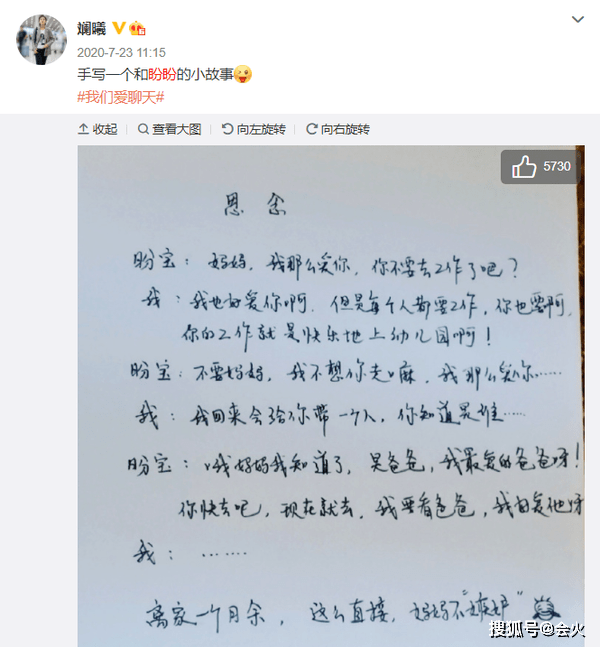 斓曦
2020-7-23 11:15
手写一个和盼盼的小故事
#我们爱聊天#
收起 查看大图 向左旋转 向右旋转
5730
思念
盼宝：妈妈，我那么爱你，你不要去工作了吧？
我：我也好爱你啊，但是每个人都要工作，你也要啊，
你的工作就是快乐地上幼儿园啊！
盼宝：不要妈妈，我不想你走嘛，我那么爱你……
我：我回来会给你带一个人，你知道是谁……
盼宝：哦好妈我知道了，是爸爸，我最爱的爸爸呀！
你快去吧，现在就去，我要看爸爸，我好爱他呀
我：……
离家一个月余，这么直接，妈妈不“嫉妒”
搜狐号@会火